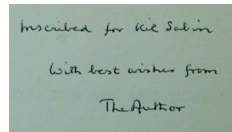 Inscribed for Kit Sabin
With best wishes from
The Author